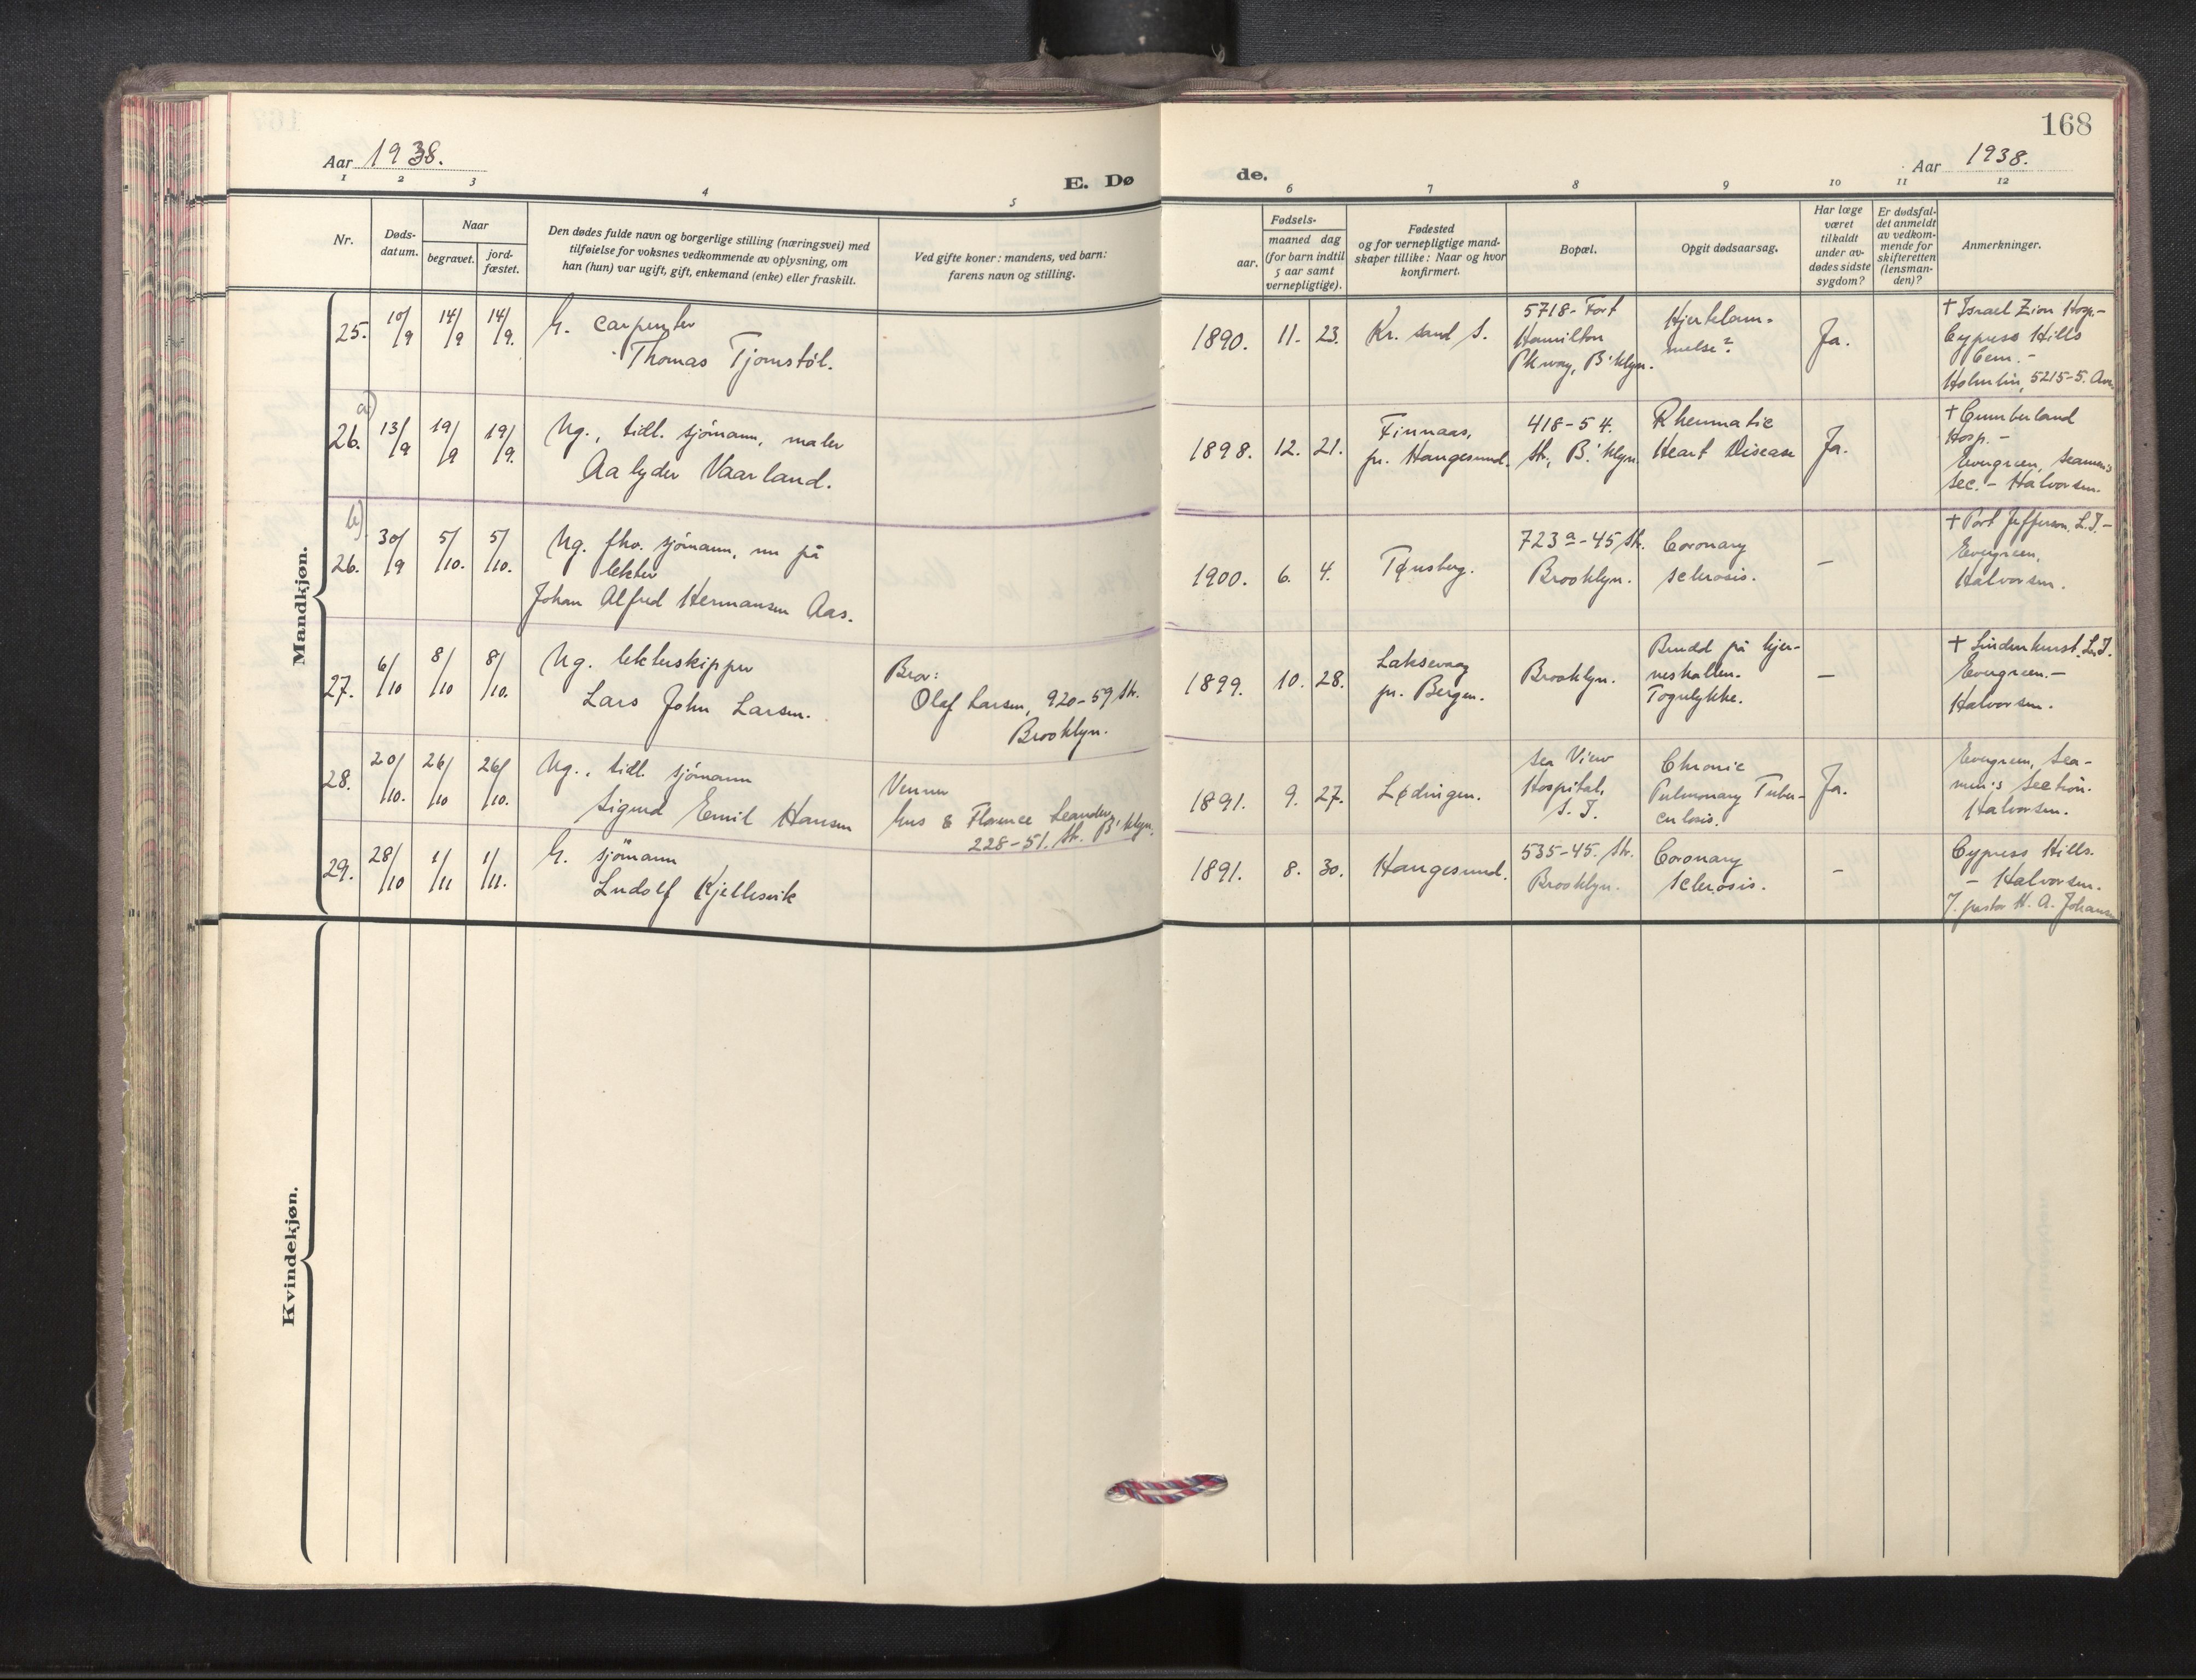 168
Aar 1938.
E. Dø de.
Aar 1938.
1 2 3 4 5 6 7 8 9 10 11 12
Nr.
Døds-
datum.
Naar
begravet.
jord-
fæstet.
Den dødes fulde navn og borgerlige stilling (næringsvei) med
tilføielse for voksnes vedkommende av oplysning, om
han (hun) var ugift, gift, enkemand (enke) eller fraskilt.
Ved gifte koner: mandens, ved barn:
farens navn og stilling.
Fødsels-
aar.
maaned dag
(for barn indtil
5 aar samt
vernepligtige).
Fødested
og for vernepligtige mand-
skaper tillike: Naar og hvor
konfirmert.
Bopæl.
Opgit dødsaarsag.
Har læge
været
tilkaldt
under av-
dødes sidste
sygdom?
Er dødsfal-
det anmeldt
av vedkom-
mende for
skifteretten
(lensman-
den)?
Anmerkninger.
Mandkjøn.
25. 10/9 14/9 14/9.
G. carpenter
Thomas Tjomstöl.
1890. 11. 23.
Kr. sand S.
5718-Fort
Hamilton
Pkway, B'klyn.
Hjerklam-
melse?
Ja.
+ Israel Zion Hosp.-
Cypress Hills
Cem. -
Holmlin, 5215-5. Ave.
a)
26. 13/9 19/9 19/9.
Ug., tidl. sjömann, maler
Aalyder Vaarland.
1898. 12. 21.
Finnaas,
pr. Haugesund.
418-54.
Str., B.'klyn.
Rheumatic
Heart Disease
Ja.
+ Cumberland
Hosp. -
Evergreen, Seamen's
Sec. - Halvorsen.
b)
26. 30/9 5/10. 5/10.
Ug. fhv. sjömann, nu på
lekter
Johan Alfred Hermansen Aas.
1900. 6. 4.
Tønsberg.
723a-45 Str.
Brooklyn.
Coronary
sclerosis.
-
+ Port Jefferson, L.I. -
Evergreen,
Halvorsen.
27. 6/10 8/10 8/10.
Ug. lekterskipper
Lars John Larsen.
Bror:
Olaf Larsen, 920-59 Str.
Brooklyn.
1899. 10. 28.
Laksevaag
pr. Bergen.
Brooklyn.
Brudd på hjer-
neskallen.
Togulykke.
-
+ Lindenhurst, L.I.
Evergreen. -
Halvorsen.
28. 20/10. 26/10 26/10.
Ug., tidl. sjömann
Sigurd Emil Hansen
Venner
Gus & Florence Leander,
228-51. Str. B'klyn.
1891. 9. 27.
Lødingen.
Sea View
Hospital,
S. I.
Chronic
Pulmonary Tuber-
culosis.
Ja.
Evergreen, Sea-
men's Section.
Halvorsen.
29. 28/10 1/11 1/11.
G. sjömann
Ludolf Kjellesvik
1891. 8. 30.
Haugesund.
535-45. Str.
Brooklyn.
Coronary
Sclerosis.
-
Cypress Hills.
- Halvorsen.
J. pastor H. A. Johansen
Kvindekjøn.